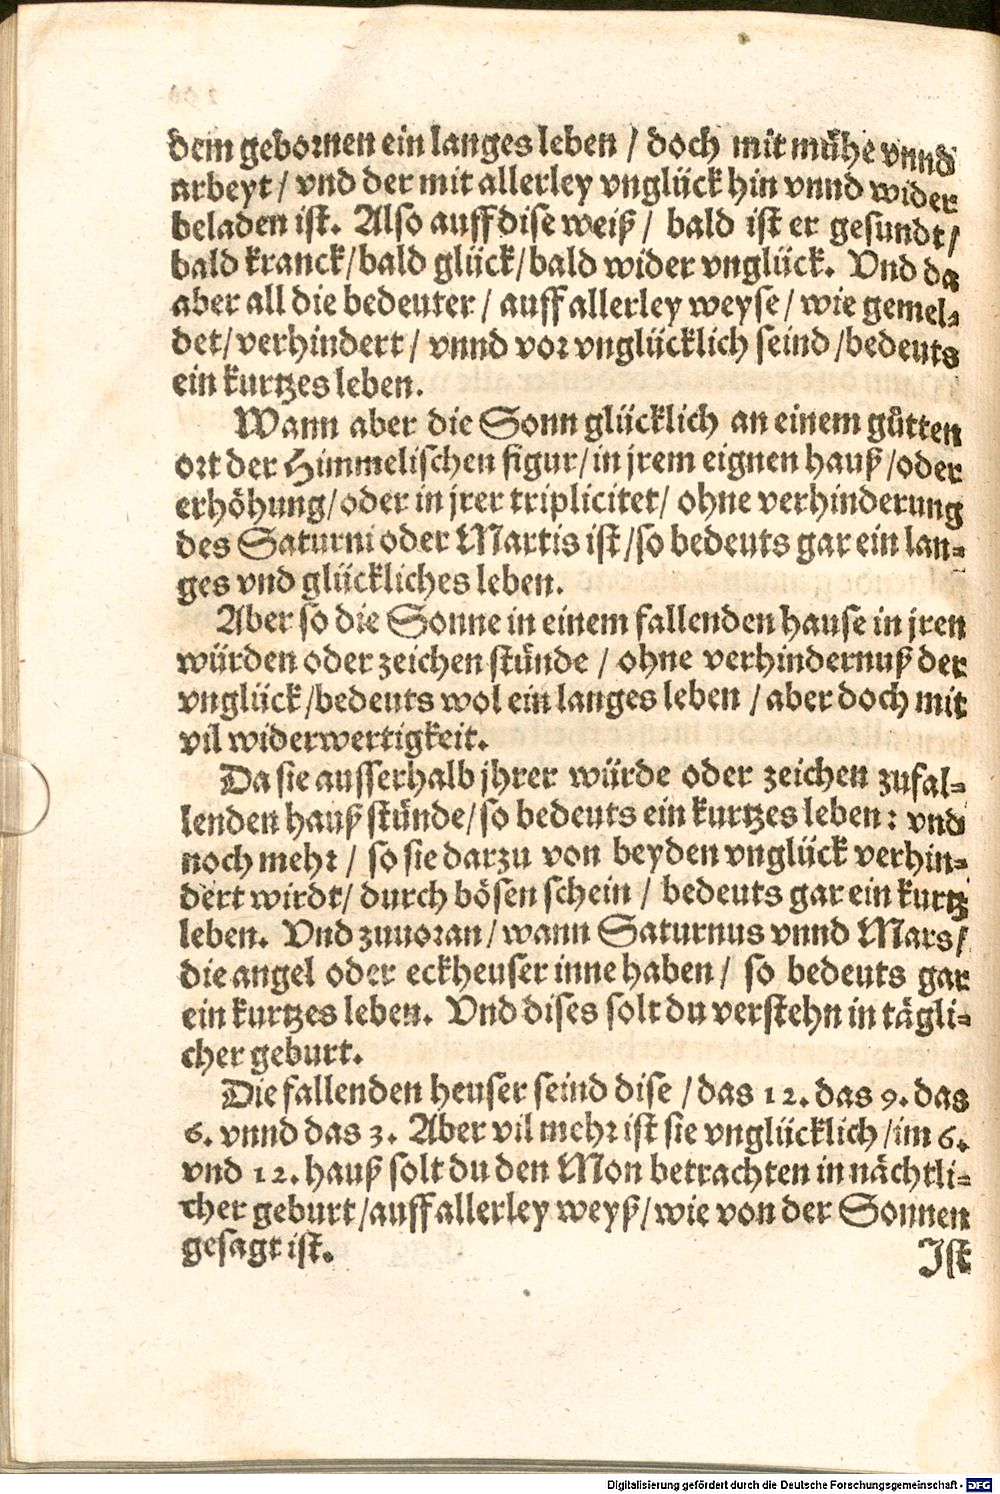 dem gebornen ein langes leben / doch mit mühe vnnd
arbeyt / vnd der mit allerley vnglück hin vnnd wider
beladen ist. Also auff dise weiß / bald ist er gesundt /
bald kranck / bald glück / bald wider vnglück. Vnd da
aber all die bedeuter / auff allerley weyse / wie gemel⸗
det / verhindert / vnnd vor vnglücklich seind / bedeuts
ein kurtzes leben.
Wann aber die Sonn glücklich an einem gůtten
ort der Himmelischen figur / in jrem eignen hauß / oder
erhöhung / oder in jrer triplicitet / ohne verhinderung
des Saturni oder Martis ist / so bedeuts gar ein lan⸗
ges vnd glückliches leben.
Aber so die Sonne in einem fallenden hause in jren
würden oder zeichen stünde / ohne verhindernuß der
vnglück / bedeuts wol ein langes leben / aber doch mit
vil widerwertigkeit.
Da sie ausserhalb jhrer würde oder zeichen zufal⸗
lenden hauß stünde / so bedeuts ein kurtzes leben: vnd
noch mehr / so sie darzu von beyden vnglück verhin⸗
dert wirdt / durch bösen schein / bedeuts gar ein kurtz
leben. Vnd zuuoran / wann Saturnus vnnd Mars /
die angel oder eckheuser inne haben / so bedeuts gar
ein kurtzes leben. Vnd dises solt du verstehn in tägli⸗
cher geburt.
Die fallenden heuser seind dise / das 12. das 9. das
6. vnnd das 3. Aber vil mehr ist sie vnglücklich / im 6.
vnd 12. hauß solt du den Mon betrachten in nächtli⸗
cher geburt / auff allerley weyß / wie von der Sonnen
gesagt ist.
Ist
Digitalisierung gefördert durch die Deutsche Forschungsgemeinschaft - DFG